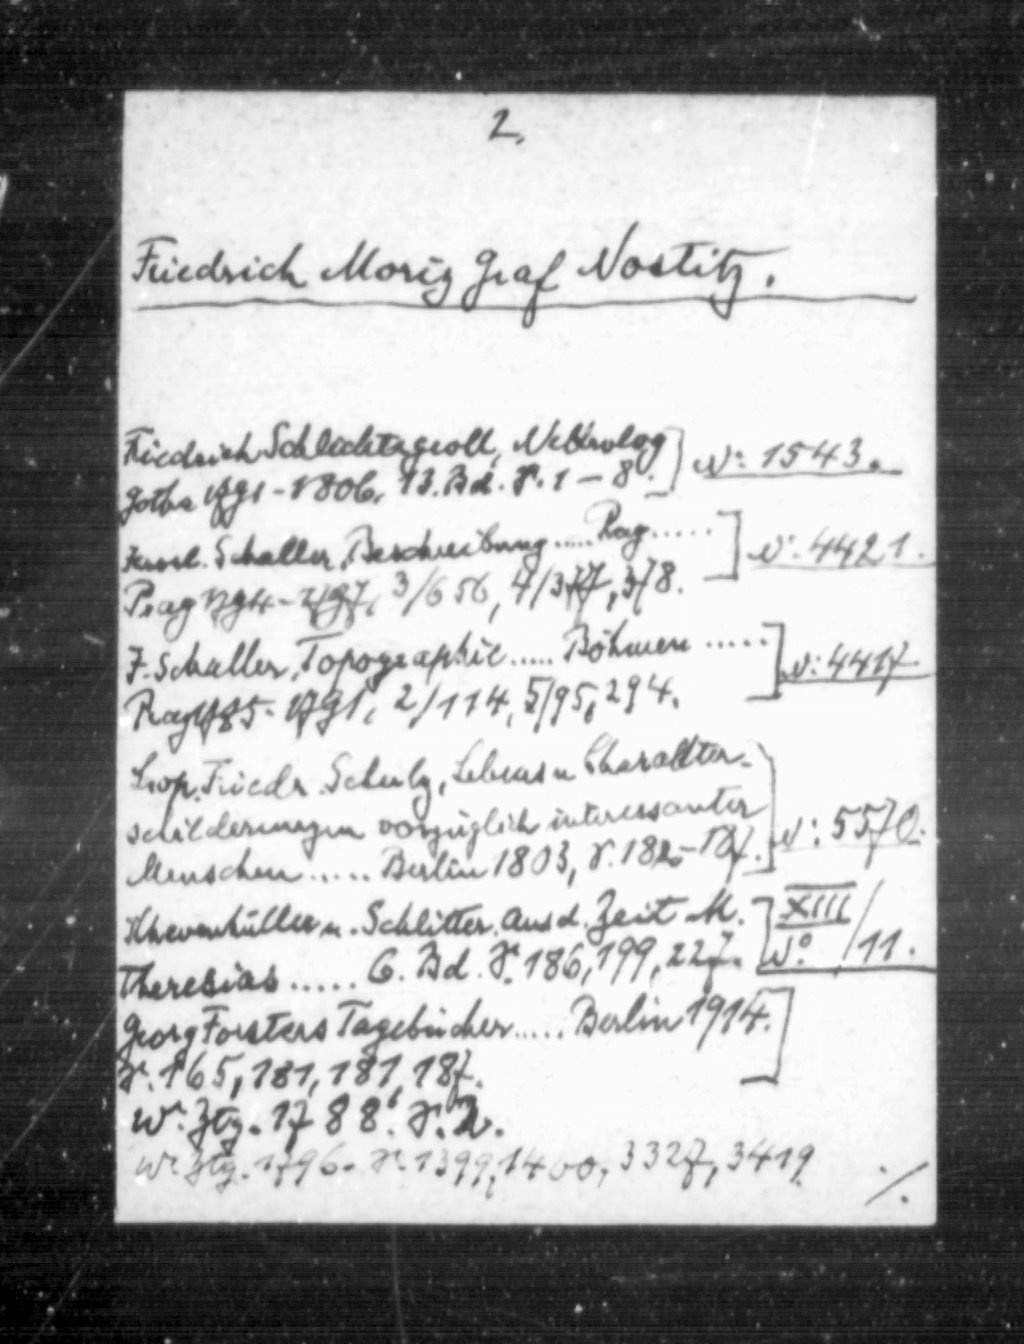 2.
Friedrich Moriz Graf Nostitz.
Friedrich Schlichtegroll, Nekrolog
Gotha 1791-1806, 13. Bd. S. 1-8. ] N: 1543.
Schaller, Beschreibung ..... Prag ..... ] N: 4421.
Prag 1794-1797, 3/656, 4/377, 378.
J. Schaller, Topographie ..... Böhmen ..... ] N: 4417
Prag 1785-1791, 2/114, 5/95, 294.
Leop. Friedr. Schulz, Lebens u Charakter-
schilderungen vorzüglich interessanter
Menschen ..... Berlin 1803, S. 182- ] N: 5570.
Khevenhüller u. Schlitter, Aus d. Zeit M. ] XIII/
Theresias ..... 6. Bd. S. 186, 199, 227. No 11.
Georg Forsters Tagebücher ..... Berlin 1914. ]
S. 165, 181, 181, 187.
W. Ztg. 1788. S. 2.
W. Ztg. 1796. S. 1399, 1460, 3327, 3419. ./.